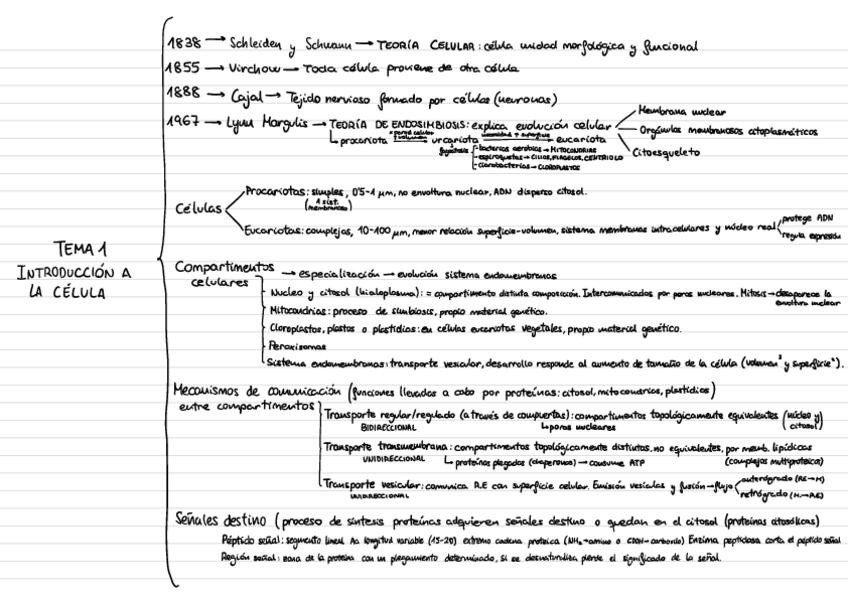 1838 → Schleiden y Schwann → TEORÍA CELULAR: célula unidad morfológica y funcional
1855 → Virchow → Toda célula proviene de otra célula
1888 → Cajal → Tejido nervioso formado por células (neuronas)
1967 → Lynn Margulis → TEORÍA DE ENDOSIMBIOSIS: explica evolución celular
Membrana nuclear
Orgánulos membranosos citoplasmáticos
Citoesqueleto
procariota urcariota eucariota
bacterias aerobias → MITOCONDRIAS
espiroquetas → CILIOS, FLAGELOS, CENTRIOLO
cianobacterias → CLOROPLASTOS
Células
Procariotas: simples, 0'5-1 μm, no envoltura nuclear, ADN disperso citosol.
(1 sist. membranoso)
Eucariotas: complejas, 10-100 μm, menor relación superficie-volumen, sistema membranas intracelulares y núcleo real
protege ADN
regula expresión
TEMA 1
INTRODUCCIÓN A
LA CÉLULA
Compartimentos celulares → especialización → evolución sistema endomembranas
Nucleo y citosol (hialoplasma): = compartimento distinta composición. Intercomunicados por poros nucleares. Mitosis → desaparece la envoltura nuclear
Mitocondrias: proceso de simbiosis, propio material genético.
Cloroplastos, plastos o plastidios: en células eucariotas vegetales, propio material genético.
Peroxisomas
Sistema endomembranas: transporte vesicular, desarrollo responde al aumento de tamaño de la célula (volumen³ y superficie²).
Mecanismos de comunicación (funciones llevadas a cabo por proteínas: citosol, mitocondrias, plastidios)
entre compartimentos
Transporte regular/regulado (a través de compuertas): compartimentos topológicamente equivalentes (núcleo y citosol)
BIDIRECCIONAL
poros nucleares
Transporte transmembrana: compartimentos topológicamente distintos. no equivalentes, por memb. lipídicas
UNIDIRECCIONAL
proteínas plegadas (chaperonas) → consume ATP
(complejos multiproteica)
Transporte vesicular: comunica RE con superficie celular. Emisión vesículas y fusión → flujo
UNIDIRECCIONAL
anterógrado (RE→M)
retrógrado (M→RE)
Señales destino (proceso de síntesis proteínas adquieren señales destino o quedan en el citosol (proteínas citosólicas)
Péptido señal: segmento lineal Aa longitud variable (15-20) extremo cadena proteica (NH₂-amino o COOH-carboxilo) Enzima peptidasa corta el péptido señal
Región señal: zona de la proteína con un plegamiento determinado, si se desnaturaliza pierde el significado de la señal.